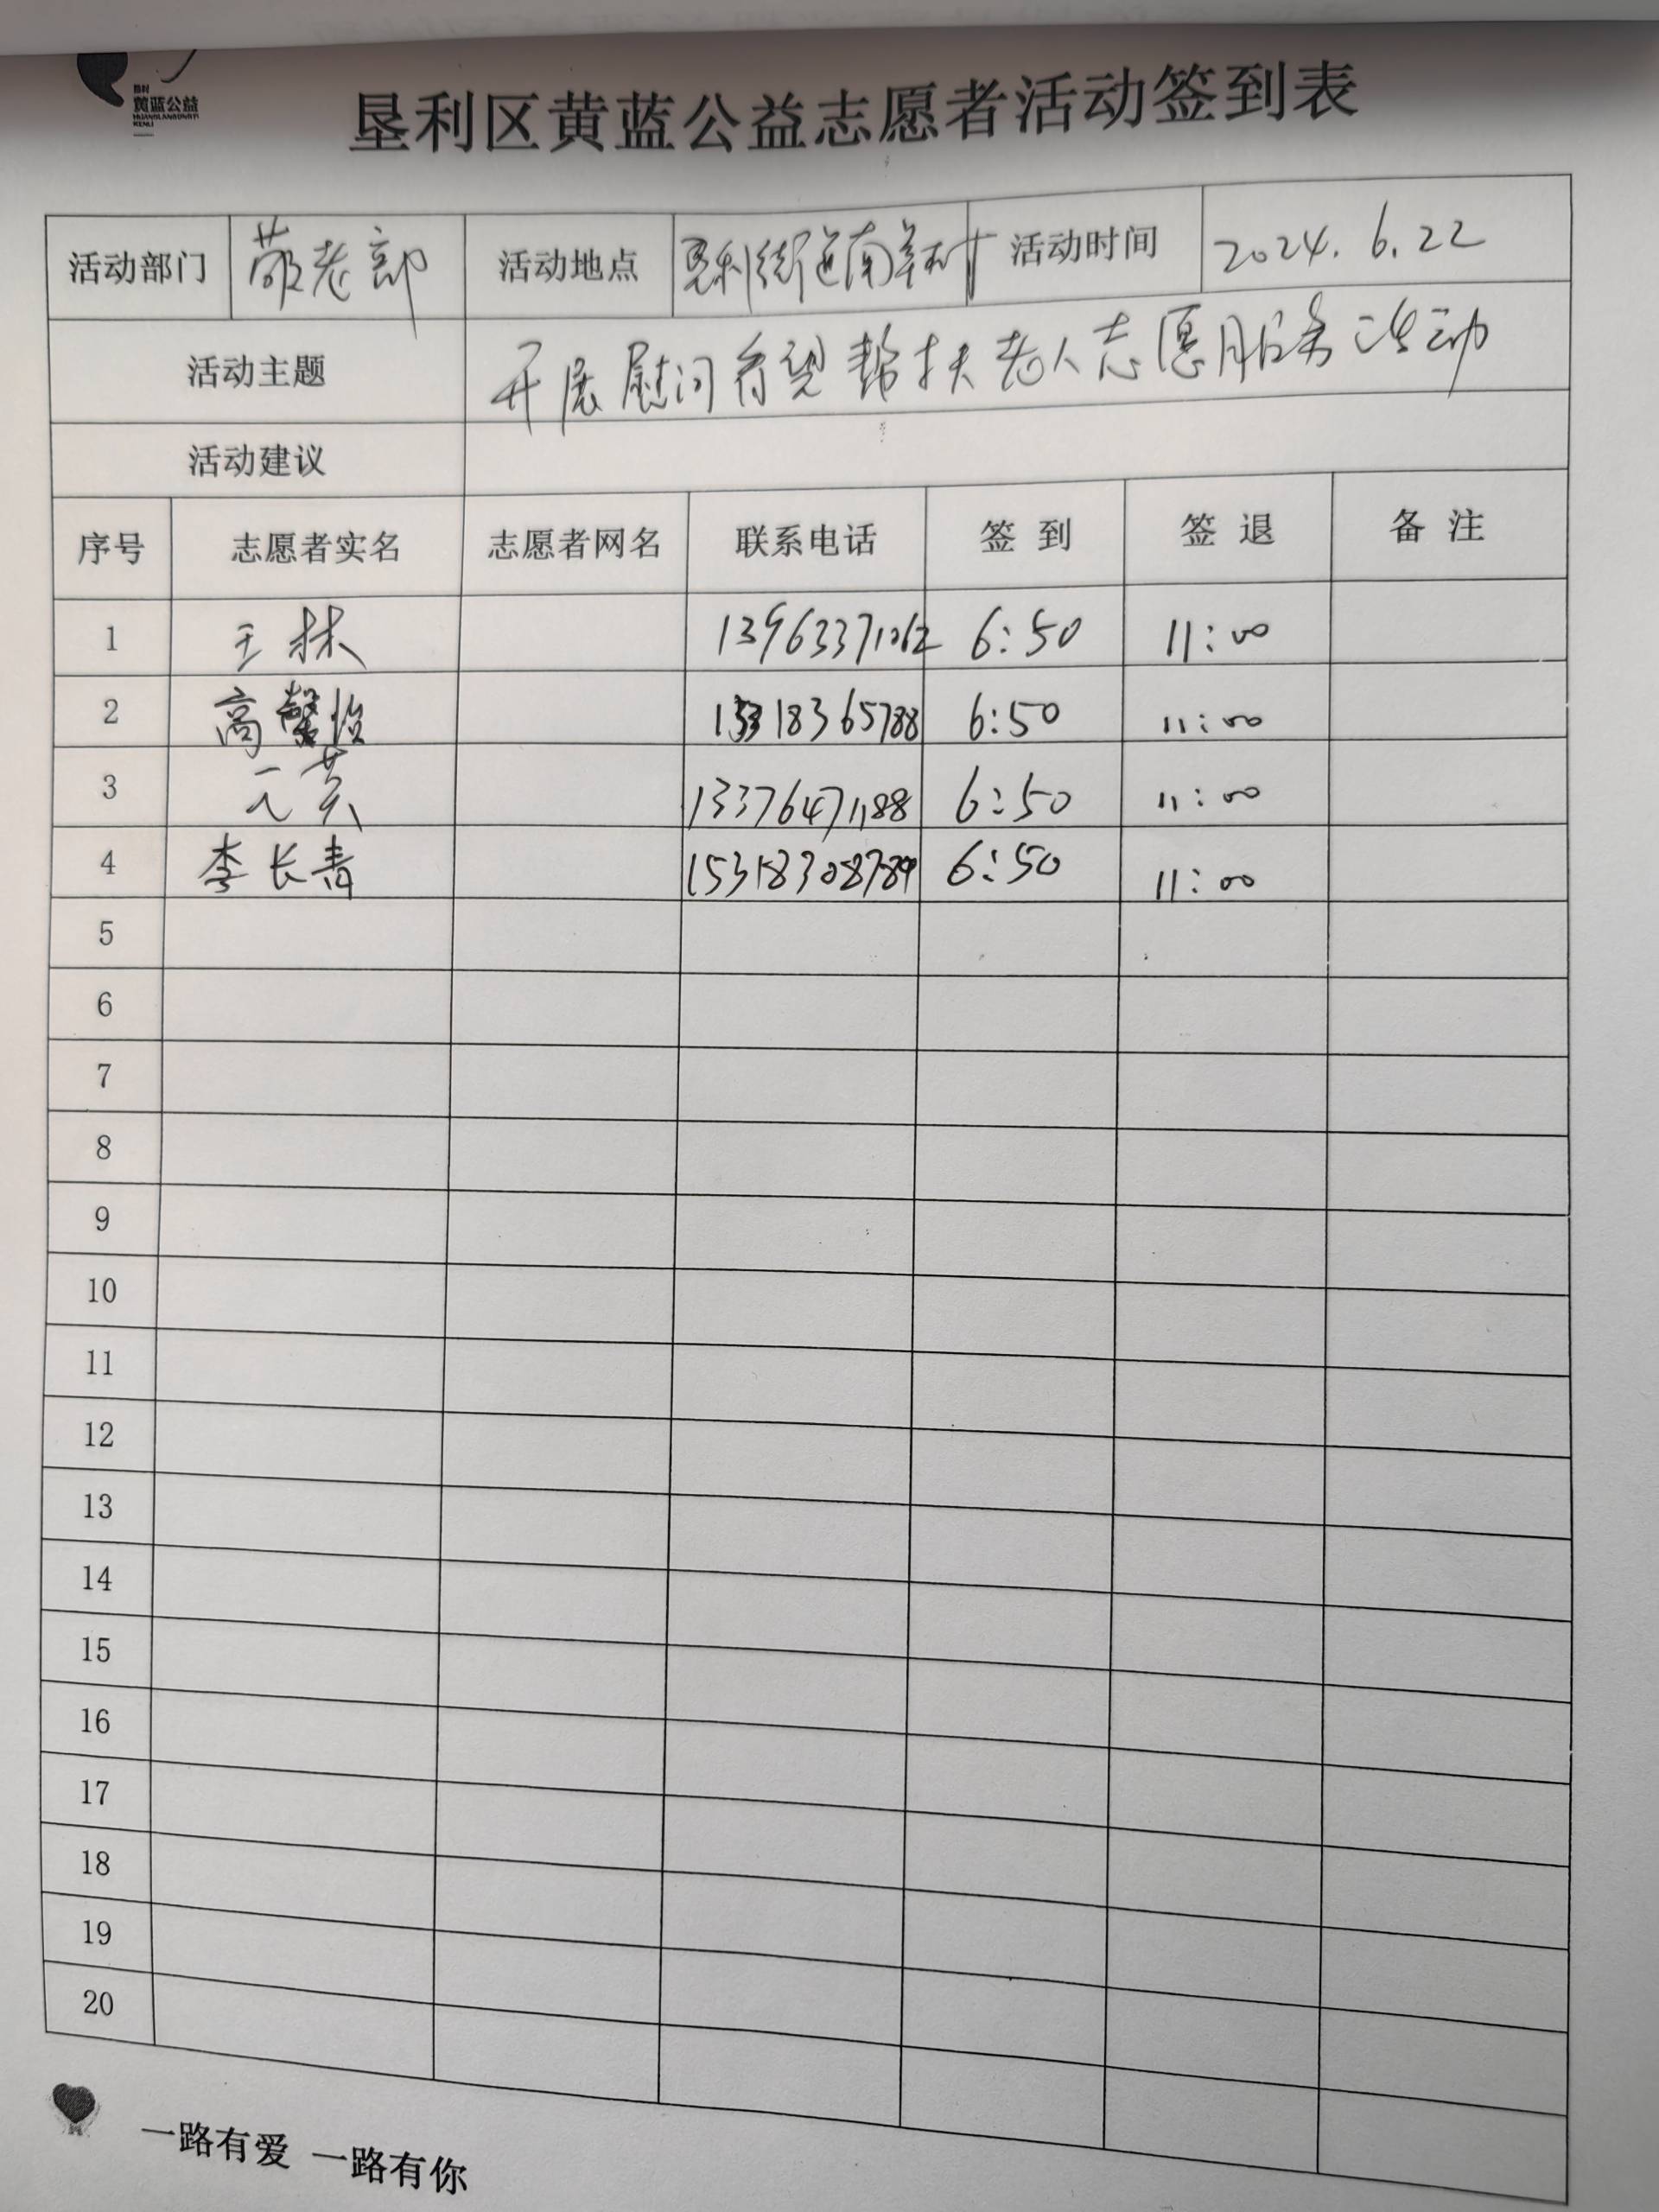 垦利
黄蓝公益
HUANGLANGONGYI
KENLI
垦利区黄蓝公益志愿者活动签到表
活动部门 敬老部 活动地点 垦利街道南羊村 活动时间 2024.6.22
活动主题 开展慰问看望帮扶老人志愿服务活动
活动建议
序号 志愿者实名 志愿者网名 联系电话 签到 签退 备注
1 王林 13963371062 6:50 11:00
2 高馨怡 6:50 11:00
3 黄 13376471188 6:50 11:00
4 李长青 15318308789 6:50 11:00
5
6
7
8
9
10
11
12
13
14
15
16
17
18
19
20
一路有爱 一路有你